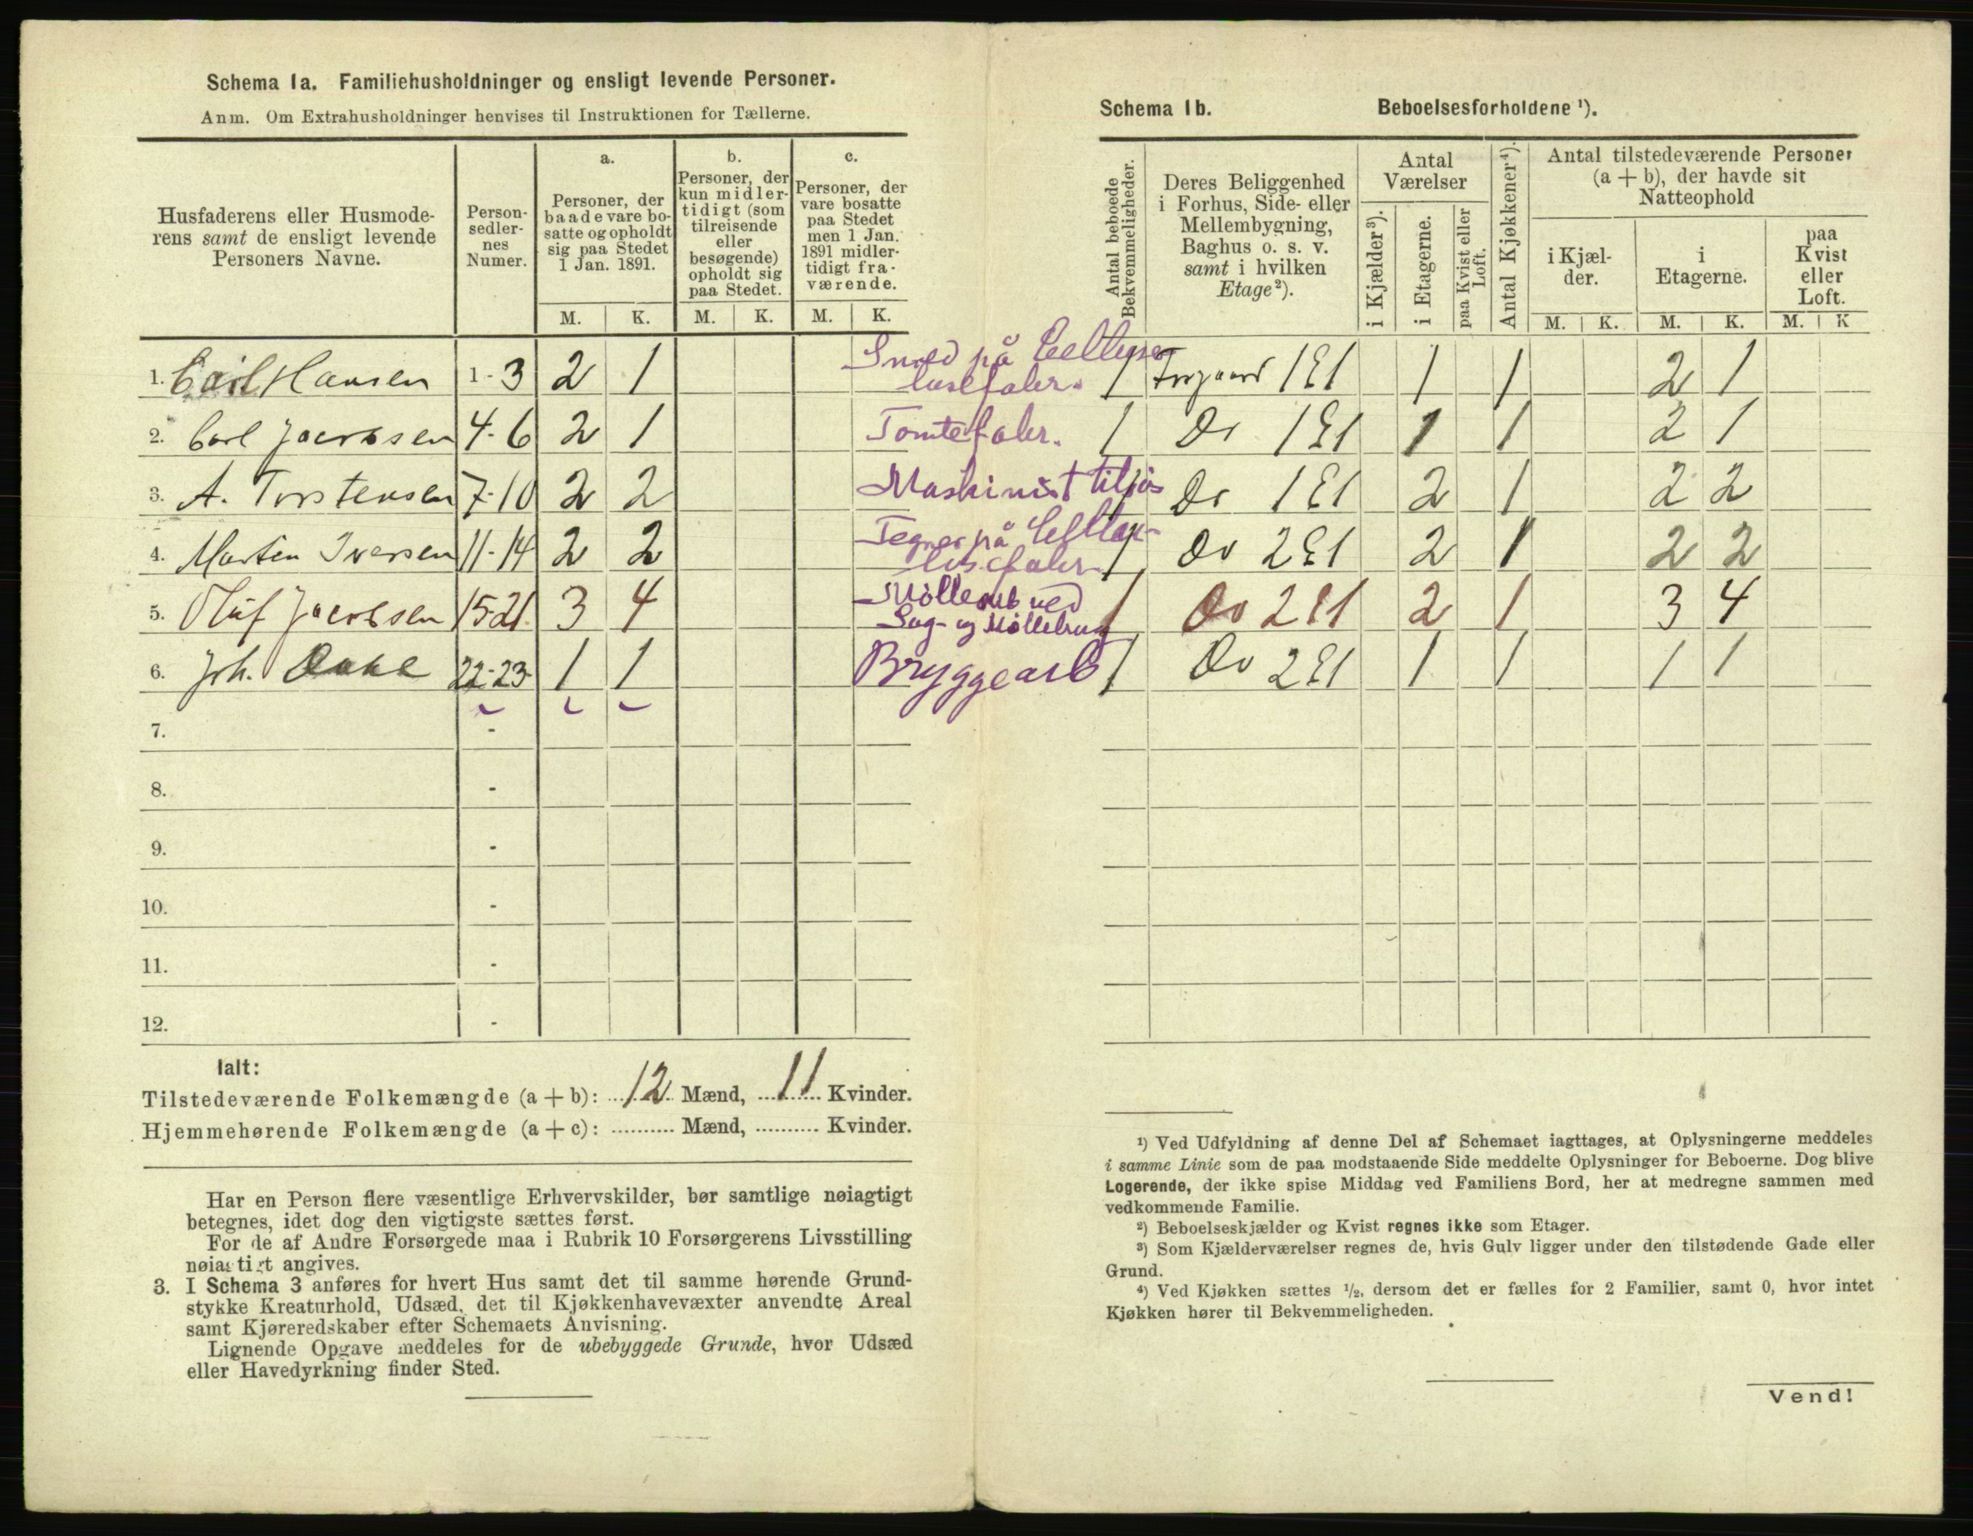 Schema 1a. Familiehusholdninger og ensligt levende Personer.
Anm. Om Extrahusholdninger henvises til Instruktionen for Tællerne.
Husfaderens eller Husmode-
rens samt de ensligt levende
Personers Navne.
Person-
sedler-
nes
Numer.
a.
Personer, der
baade vare bo-
satte og opholdt
sig paa Stedet
1 Jan. 1891.
b.
Personer, der
kun midler-
tidigt (som
tilreisende
eller
besøgende)
opholdt sig
paa Stedet.
c.
Personer, der
vare bosatte
paa Stedet
men 1 Jan.
1891 midler-
tidigt fra-
værende.
M. K. M. K. M. K.
1. Carl Hansen 1-3 2 1 Smed på
2. Carl Jacobsen 4-6 2 1 Tomtefabr.
3. A. Torstensen 7-10 2 2 Maskinist
4. Martin Iversen 11-14 2 2 Tegner på
5. Oluf Jacobsen 15-21 3 4 Møllearb ved
Sag- og Møllebrug
6. Joh. 22-23 1 1 Bryggearb
7. -
8. -
9. -
10. -
11. -
12. -
Ialt:
Tilstedeværende Folkemængde (a + b): 12 Mænd, 11 Kvinder.
Hjemmehørende Folkemængde (a + c): .......... Mænd, .......... Kvinder.
Har en Person flere væsentlige Erhvervskilder, bør samtlige nøiagtigt
betegnes, idet dog den vigtigste sættes først.
For de af Andre Forsørgede maa i Rubrik 10 Forsørgerens Livsstilling
nøiagtigt angives.
3. I Schema 3 anføres for hvert Hus samt det til samme hørende Grund-
stykke Kreaturhold, Udsæd, det til Kjøkkenhavevæxter anvendte Areal
samt Kjøreredskaber efter Schemaets Anvisning.
Lignende Opgave meddeles for de ubebyggede Grunde, hvor Udsæd
eller Havedyrkning finder Sted.
Schema 1b. Beboelsesforholdene ¹).
Antal beboede
Bekvemmeligheder.
Deres Beliggenhed
i Forhus, Side- eller
Mellembygning,
Baghus o. s. v.
samt i hvilken
Etage²).
Antal
Værelser
i Kjælder³).
i Etagerne.
paa Kvist eller
Loft.
Antal Kjøkkener⁴).
Antal tilstedeværende Personer
(a + b), der havde sit
Natteophold
i Kjæl-
der.
i
Etagerne.
paa
Kvist
eller
Loft.
M. K. M. K. M. K
1 1 E 1 1 1 2 1
1 Do 1 E 1 1 1 2 1
1 Do 1 E 1 2 1 2 2
1 Do 2 E 1 2 1 2 2
1 Do 2 E 1 2 1 3 4
1 Do 2 E 1 1 1 1 1
¹) Ved Udfyldning af denne Del af Schemaet iagttages, at Oplysningerne meddeles
i samme Linie som de paa modstaaende Side meddelte Oplysninger for Beboerne. Dog blive
Logerende, der ikke spise Middag ved Familiens Bord, her at medregne sammen med
vedkommende Familie.
²) Beboelseskjælder og Kvist regnes ikke som Etager.
³) Som Kjælderværelser regnes de, hvis Gulv ligger under den tilstødende Gade eller
Grund.
⁴) Ved Kjøkken sættes ½, dersom det er fælles for 2 Familier, samt 0, hvor intet
Kjøkken hører til Bekvemmeligheden.
Vend!